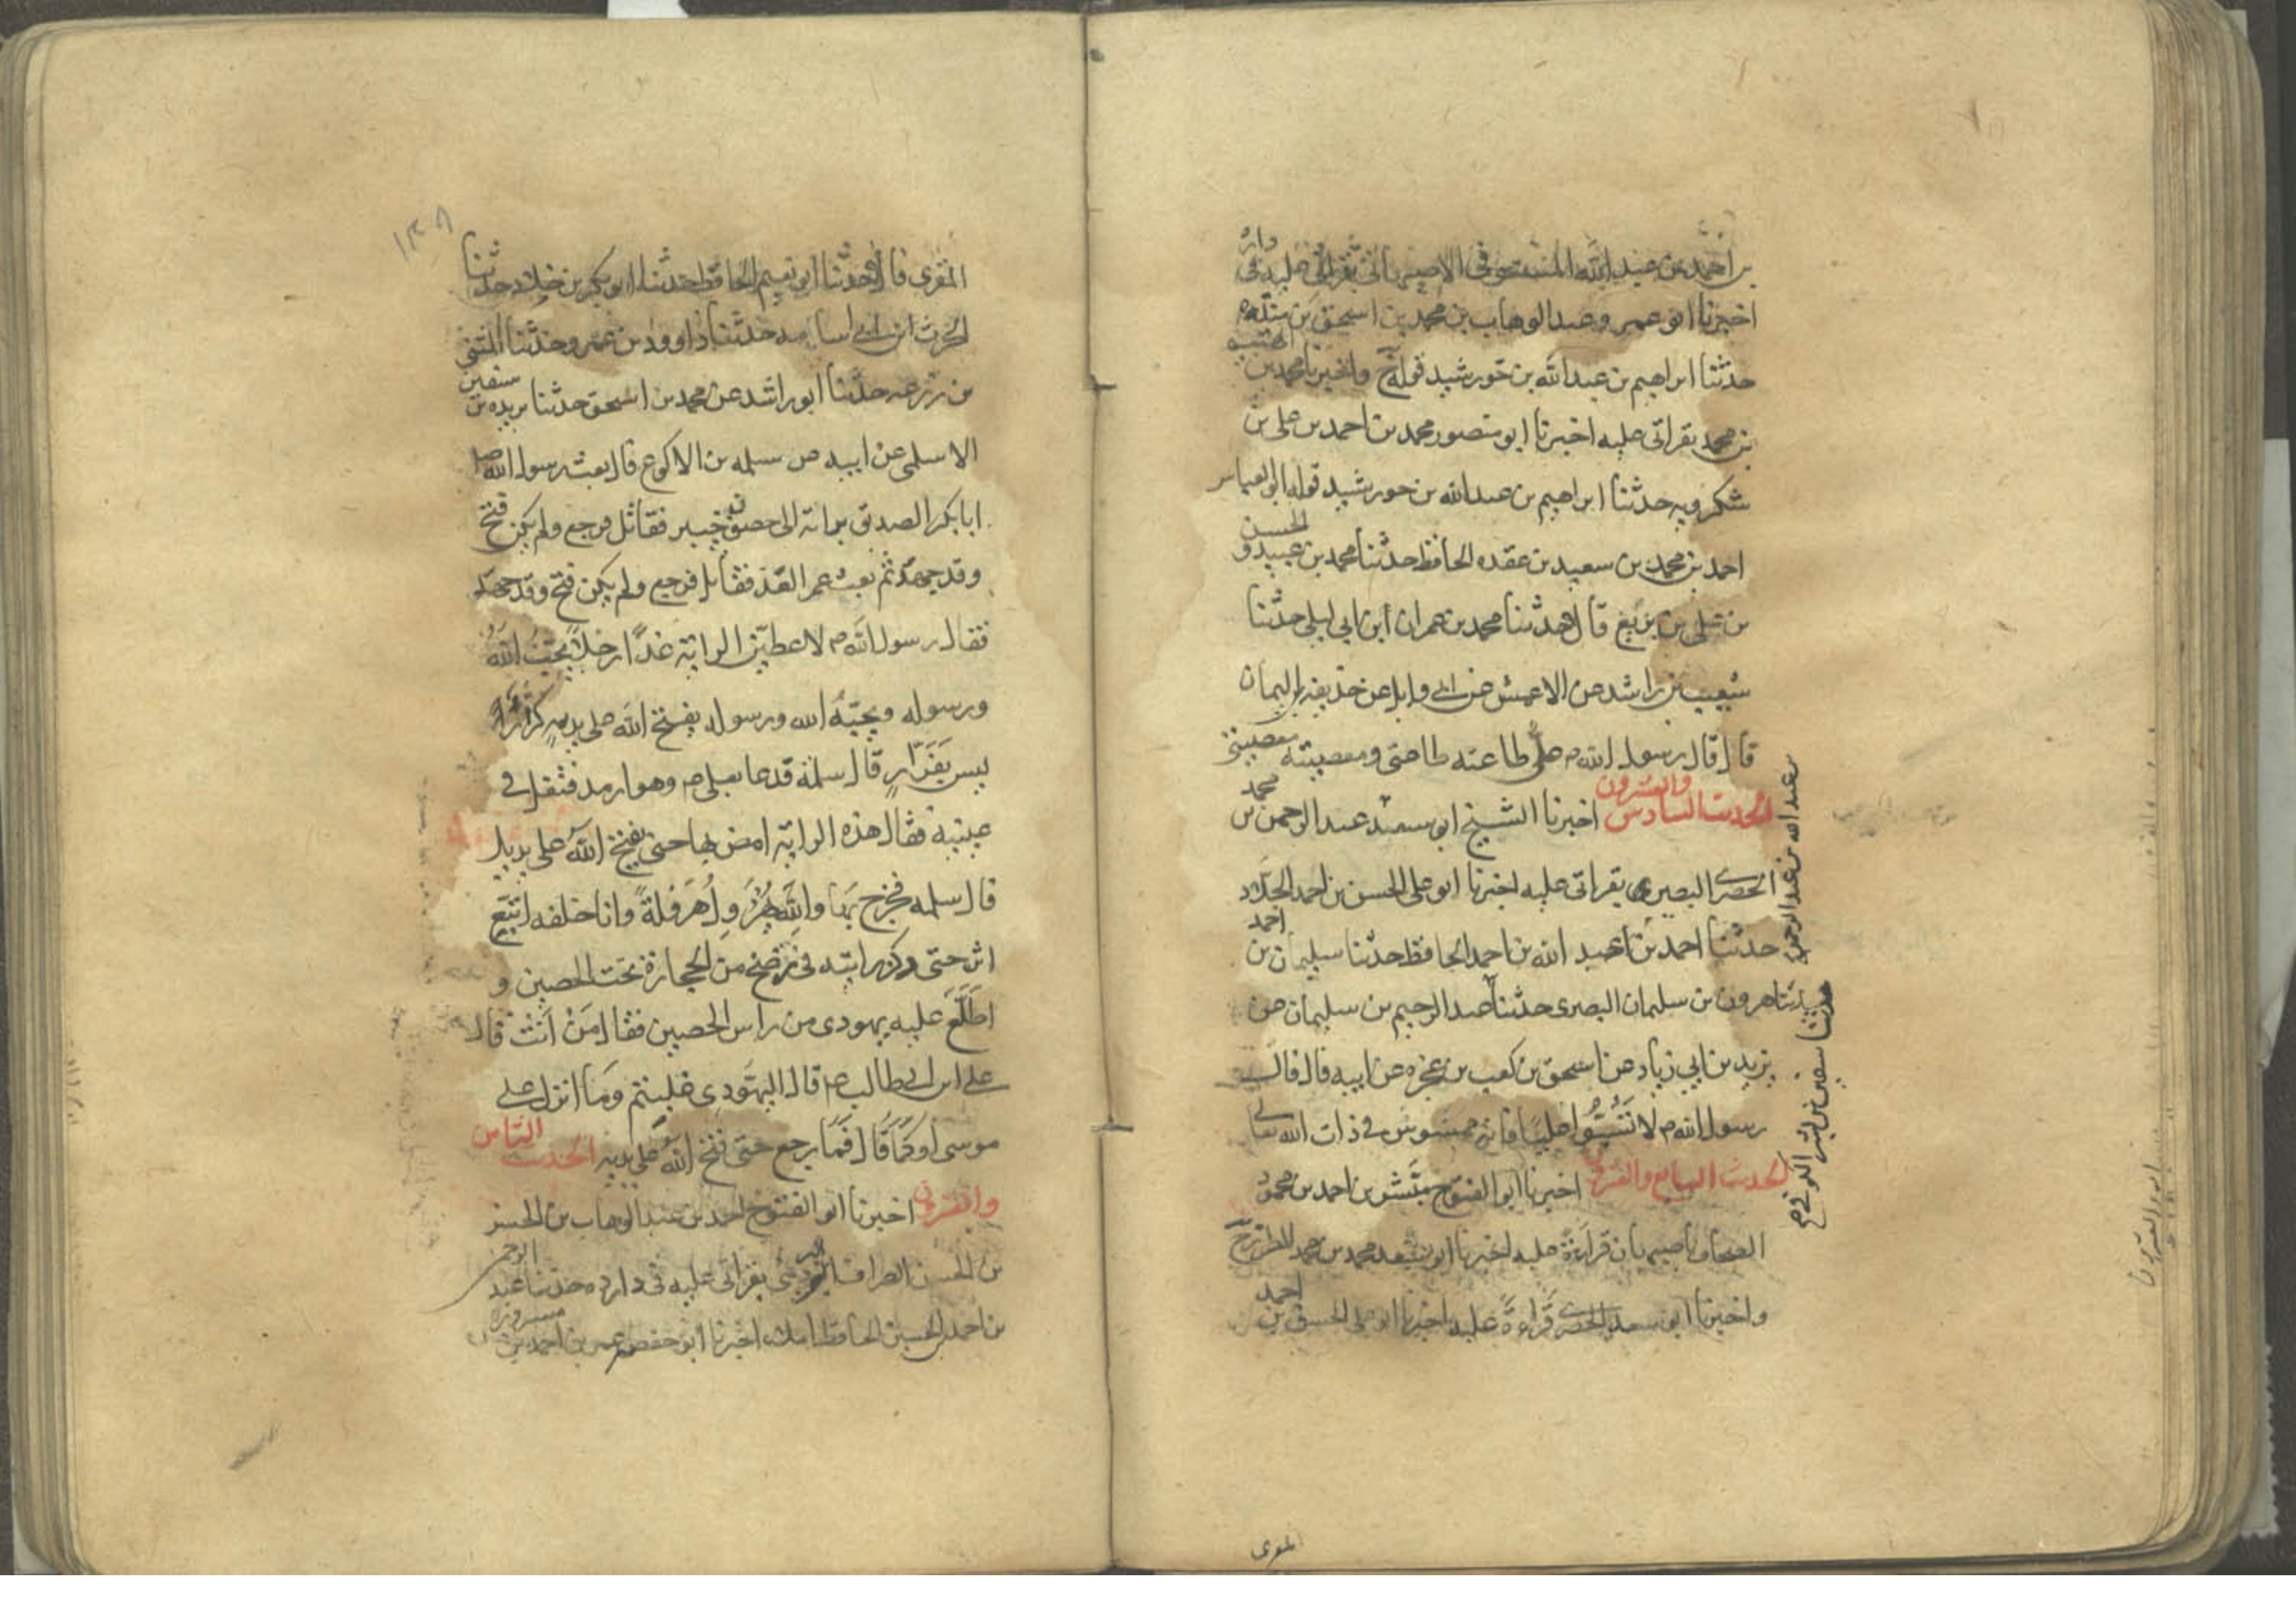 بن احمد بن عبد الله المستوفى الاصبهانى بقراتى عليه فى داره
اخبرنا ابو عمرو عبد الوهاب بن محمد بن اسحق بن منده
حدثنا ابراهيم بن عبد الله بن خورشيد قوله ح واخبرنا محمد بن
بن محمد بقراتى عليه اخبرنا ابو منصور محمد بن احمد بن على بن
شكرويه حدثنا ابراهيم بن عبد الله بن خورشيد قوله ابو العباس
احمد بن محمد بن سعيد بن عقده الحافظ حدثنا محمد بن عبيد و الحسن
بن على بن بزيع قالا حدثنا محمد بن عمران ابن ابى ليلى حدثنا
شعيب بن راشد عن الاعمش عن ابى وايل عن حذيفه بن اليمان
قال قال رسول الله م على طاعته طاعتى ومعصيته معصيتى
الحديث السادس والعشرون اخبرنا الشيخ ابو سعد عبد الرحمن بن محمد
الحصرى البصيرى بقراتى عليه اخبرنا ابو على الحسن بن احمد الحداد
حدثنا احمد بن عبد الله بن احمد الحافظ حدثنا سليمان بن احمد
حدثنا هرون بن سليمان البصرى حدثنا عبد الرحيم بن سليمان عن
يزيد بن ابي زياد عن اسحق بن كعب بن عجره عن ابيه قال قال
رسول الله م لا تسبوا عليا فانه ممسوس فى ذات الله تعالى
الحديث السابع والعشرون اخبرنا ابو الفتوح بن احمد بن محمود
الصحاف باصبهان قراءة عليه اخبرنا ابو سعد محمد بن محمد المطرز ح
واخبرنا ابو سعد الحصرى قراءة عليه اخبرنا ابو على الحسن بن احمد
المقرى
حدثنا سفين بن بشر الكوفى
المقرى قالا حدثنا ابو نعيم الحافظ حدثنا ابو بكر بن خلاد حدثنا
الحرث ابن ابى اسامه حدثنا داوود بن عمرو حدثنا المثنى
بن زرعه حدثنا ابو راشد عن محمد بن اسحق حدثنا بريده بن سفين
الاسلمى عن ابيه عن سلمه بن الاكوع قال بعث رسول الله صلى
ابا بكر الصديق برايته الى حصون خيبر فقاتل فرجع ولم يكن فتح
وقد جهد ثم بعث عمر الغد فقاتل فرجع ولم يكن فتح وقد جهد
فقال رسول الله م لاعطين الراية غدا رجلا يحب الله
ورسوله ويحبه الله ورسوله يفتح الله على يديه كرارا
ليس بفرار قال سلمة فدعا بعلى م وهو ارمد فتفل فى
عينيه فقال هذه الراية امض بها حتى يفتح الله على يديك
قال سلمه فخرج بها والله يهرول هرولة وانا خلفه اتبع
اثره حتى ركز رايته فى رضخ من الحجارة تحت الحصين و
اطلع عليه يهودى من راس الحصين فقال من انت قال
على ابن ابى طالب م قال اليهودى غلبتم وما انزل على
موسى او كما قال فما رجع حتى فتح الله على يديه الحديث الثامن
والعشرون اخبرنا ابو الفتوح احمد بن عبد الوهاب بن الحسن
بن الحسن الصراف بقراتى عليه فى داره حدثنا عبد الرحمن
بن احمد بن الحسين الحافظ املاء اخبرنا ابو حفص عمر بن احمد بن مسرور
١٣٨